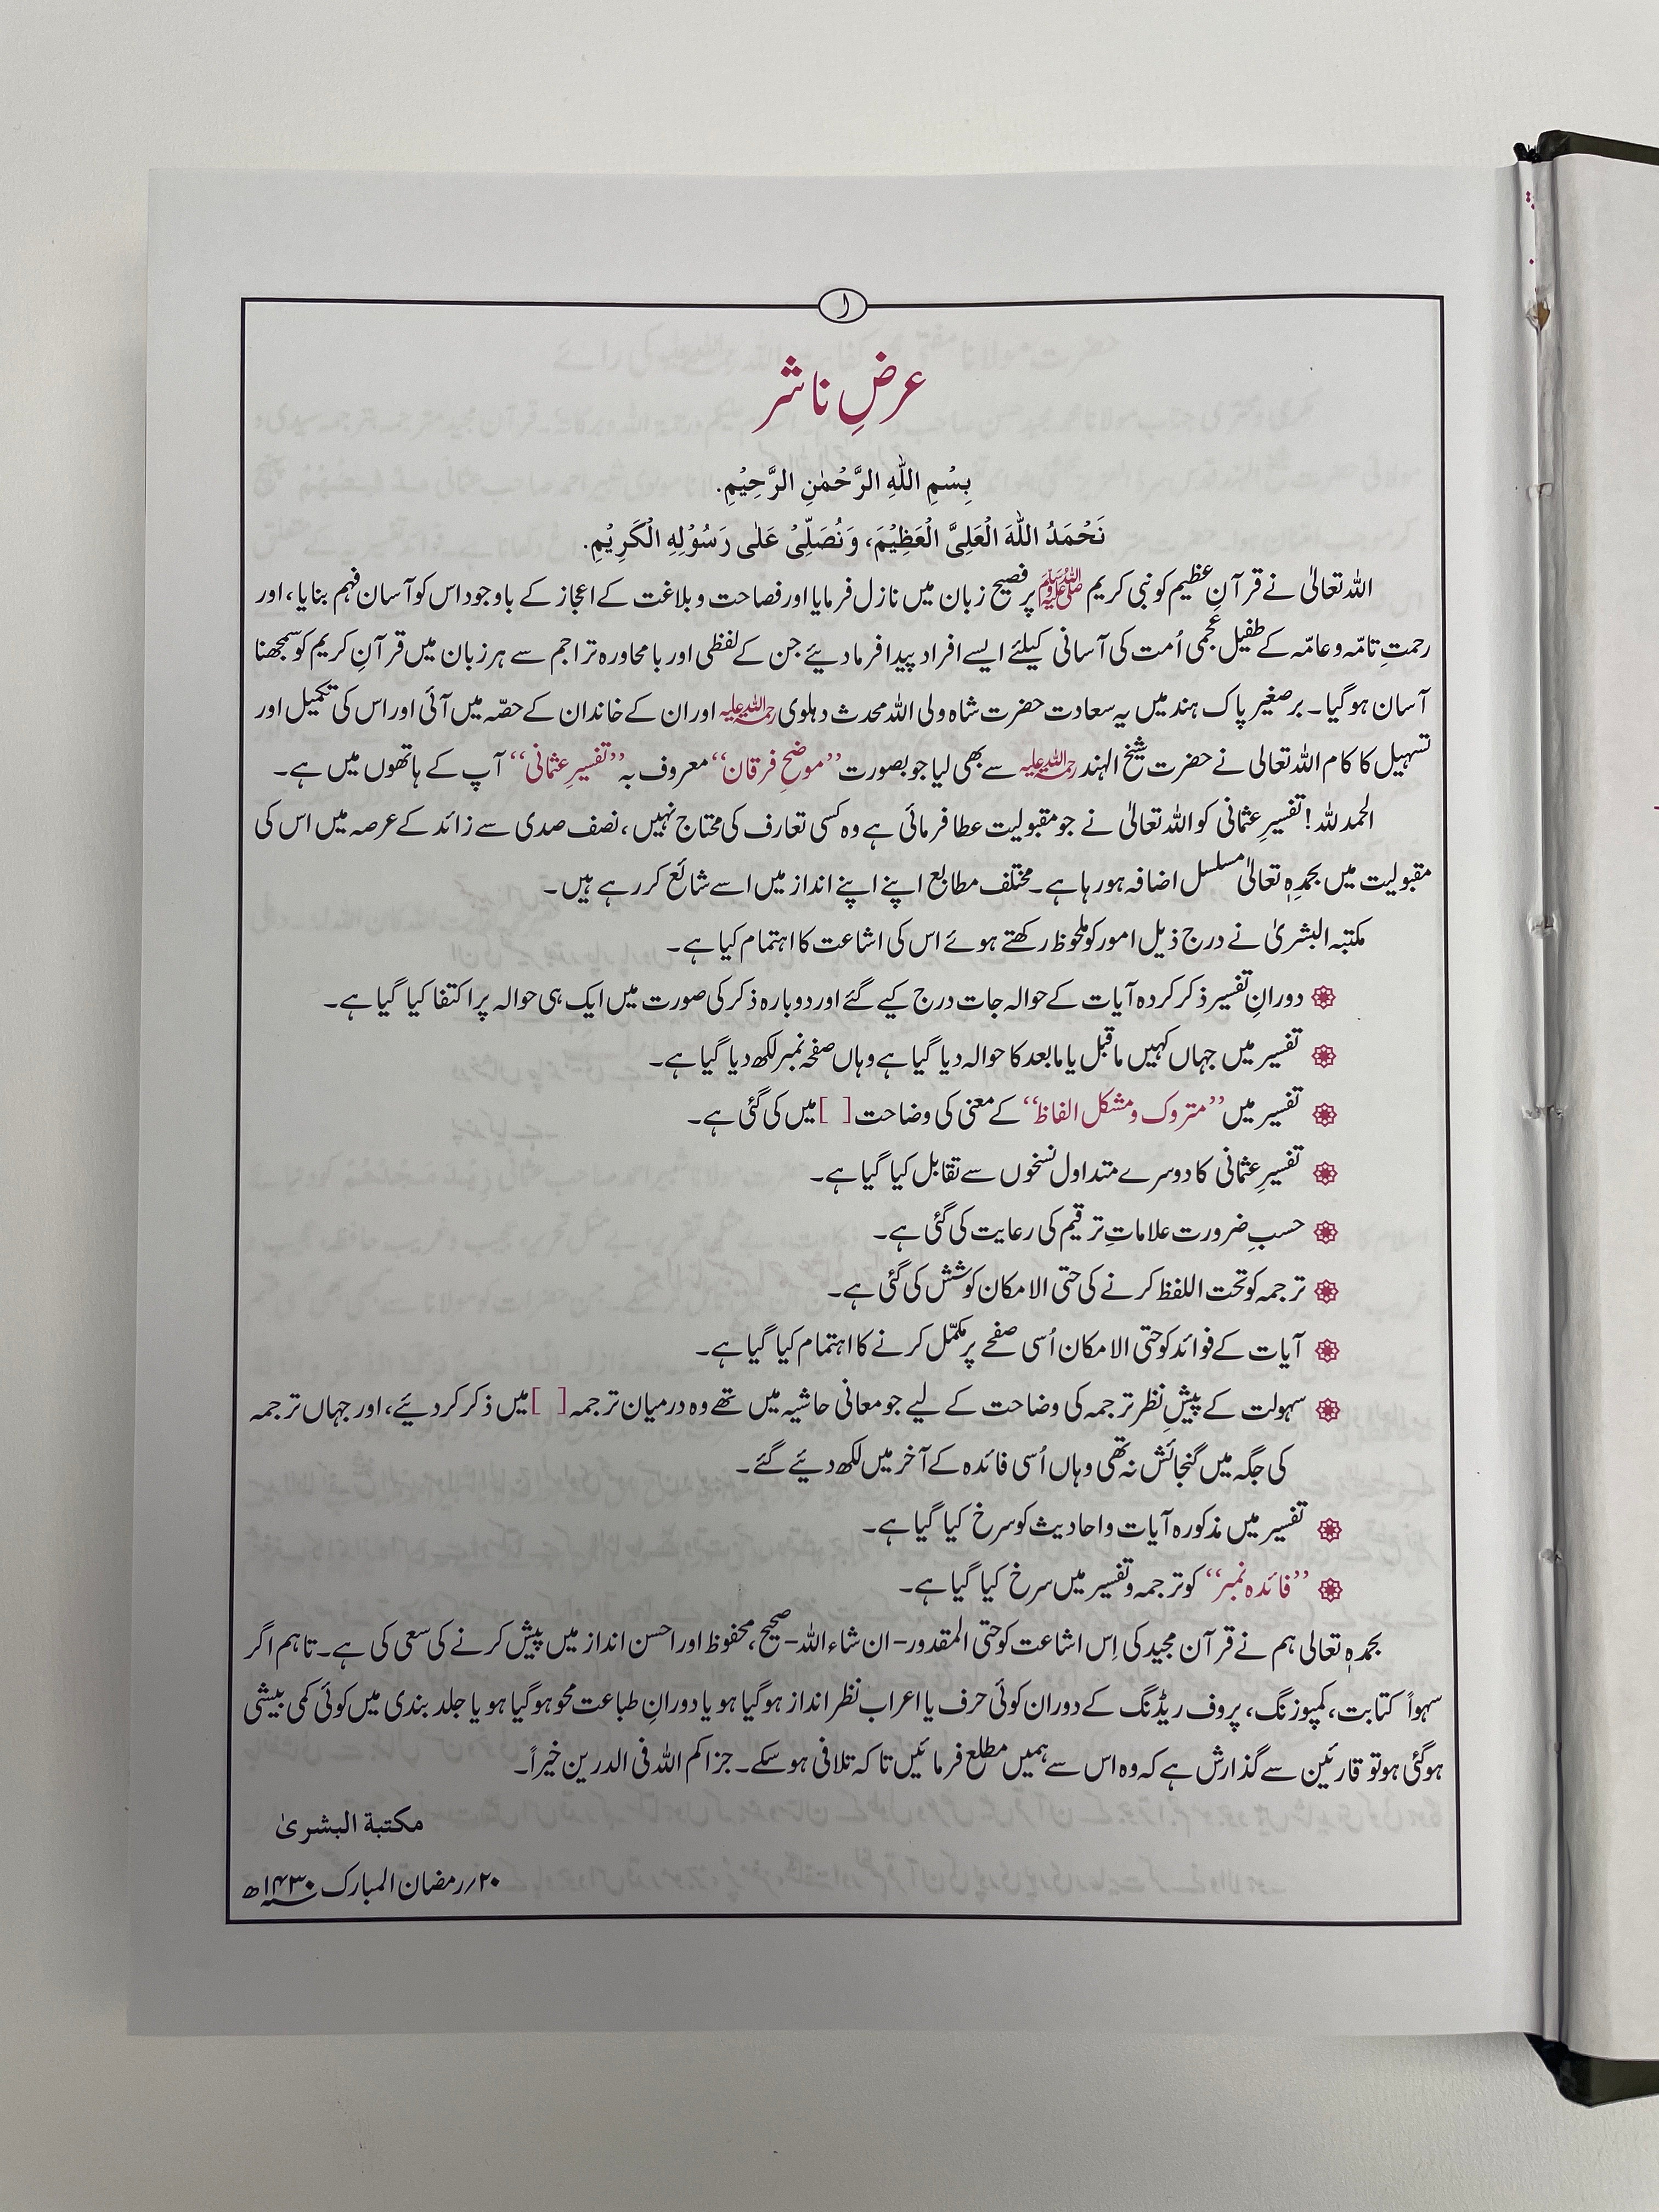 ا
عرضِ ناشر
بِسْمِ اللّٰهِ الرَّحْمٰنِ الرَّحِيْمِ.
نَحْمَدُ اللّٰهَ الْعَلِيَّ الْعَظِيْمَ، وَنُصَلِّيْ عَلٰى رَسُوْلِهِ الْكَرِيْمِ.
اللہ تعالیٰ نے قرآنِ عظیم کو نبی کریم ﷺ پر فصیح زبان میں نازل فرمایا اور فصاحت و بلاغت کے اعجاز کے باوجود اس کو آسان فہم بنایا، اور
رحمتِ تامّہ و عامّہ کے طفیل عجمی اُمت کی آسانی کیلئے ایسے افراد پیدا فرمادیئے جن کے لفظی اور بامحاورہ تراجم سے ہر زبان میں قرآنِ کریم کو سمجھنا
آسان ہوگیا۔ برصغیر پاک ہند میں یہ سعادت حضرت شاہ ولی اللہ محدث دہلوی رحمۃ اللہ علیہ اور ان کے خاندان کے حصّہ میں آئی اور اس کی تکمیل اور
تسہیل کا کام اللہ تعالی نے حضرت شیخ الہند رحمۃ اللہ علیہ سے بھی لیا جو بصورت ’’موضح فرقان‘‘ معروف بہ ’’تفسیرِ عثمانی‘‘ آپ کے ہاتھوں میں ہے۔
الحمد للہ! تفسیرِ عثمانی کو اللہ تعالیٰ نے جو مقبولیت عطا فرمائی ہے وہ کسی تعارف کی محتاج نہیں، نصف صدی سے زائد کے عرصہ میں اس کی
مقبولیت میں بحمدِہٖ تعالیٰ مسلسل اضافہ ہو رہا ہے۔ مختلف مطابع اپنے اپنے انداز میں اسے شائع کر رہے ہیں۔
مکتبہ البشریٰ نے درج ذیل امور کو ملحوظ رکھتے ہوئے اس کی اشاعت کا اہتمام کیا ہے۔
دورانِ تفسیر ذکر کردہ آیات کے حوالہ جات درج کیے گئے اور دوبارہ ذکر کی صورت میں ایک ہی حوالہ پر اکتفا کیا گیا ہے۔
تفسیر میں جہاں کہیں ماقبل یا مابعد کا حوالہ دیا گیا ہے وہاں صفحہ نمبر لکھ دیا گیا ہے۔
تفسیر میں ’’متروک و مشکل الفاظ‘‘ کے معنی کی وضاحت [ ] میں کی گئی ہے۔
تفسیرِ عثمانی کا دوسرے متداول نسخوں سے تقابل کیا گیا ہے۔
حسبِ ضرورت علاماتِ ترقیم کی رعایت کی گئی ہے۔
ترجمہ کو تحت اللفظ کرنے کی حتی الامکان کوشش کی گئی ہے۔
آیات کے فوائد کو حتی الامکان اُسی صفحے پر مکمّل کرنے کا اہتمام کیا گیا ہے۔
سہولت کے پیشِ نظر ترجمہ کی وضاحت کے لیے جو معانی حاشیہ میں تھے وہ درمیان ترجمہ [ ] میں ذکر کر دیئے، اور جہاں ترجمہ
کی جگہ میں گنجائش نہ تھی وہاں اُسی فائدہ کے آخر میں لکھ دیئے گئے۔
تفسیر میں مذکورہ آیات و احادیث کو سرخ کیا گیا ہے۔
’’فائدہ نمبر‘‘ کو ترجمہ و تفسیر میں سرخ کیا گیا ہے۔
بحمدہٖ تعالی ہم نے قرآن مجید کی اِس اشاعت کو حتی المقدور - ان شاء اللہ - صحیح، محفوظ اور احسن انداز میں پیش کرنے کی سعی کی ہے۔ تاہم اگر
سہواً کتابت، کمپوزنگ، پروف ریڈنگ کے دوران کوئی حرف یا اعراب نظر انداز ہوگیا ہو یا دورانِ طباعت محو ہوگیا ہو یا جلد بندی میں کوئی کمی بیشی
ہوگئی ہو تو قارئین سے گذارش ہے کہ وہ اس سے ہمیں مطلع فرمائیں تاکہ تلافی ہو سکے۔ جزاکم اللہ فی الدرین خیراً۔
مکتبة البشریٰ
۲۰؍رمضان المبارک ۱۴۳۰ھ